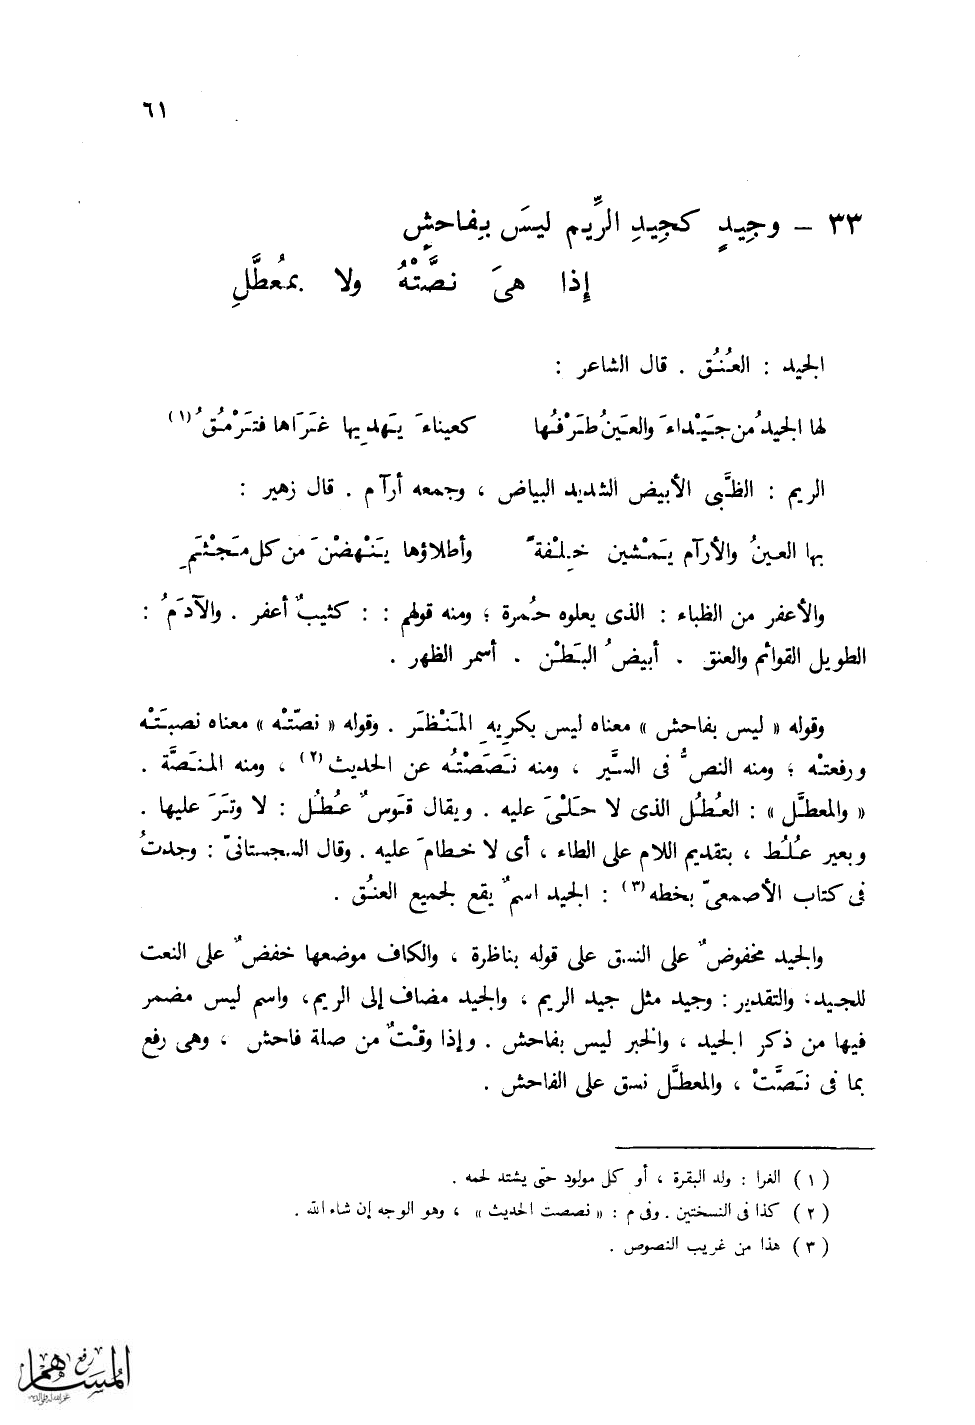 ٦١
٣٣ – وجِيدٍ كجِيدِ الرِّيم ليسَ بِفاحشٍ
إذا هىَ نصَّتْهُ ولا بمُعطَّلِ
الجيد : العُنُق . قال الشاعر :
لها الجيدُ من جَيْداءَ والعَينُ طَرْفُها كعيناءَ يَهديها غَرَاها فتَرْمُقُ (١)
الريم : الظَّبى الأبيض الشديد البياض ، وجمعه أرآم . قال زهير :
بها العينُ والأرآم يَمْشين خِلْفةً وأطلاؤها يَنْهضْنَ من كل مَجْثَمِ
والأعفر من الظباء : الذى يعلوه حُمرة ؛ ومنه قولهم : : كثيبٌ أعفر . والآدَمُ :
الطويل القوائم والعنق . أبيضُ البَطْن . أسمر الظهر .
وقوله « ليس بفاحش » معناه ليس بكريهِ المَنْظَر . وقوله « نصّتْه » معناه نصبَتْه
ورفعتْه ؛ ومنه النصُّ فى السيَّر ، ومنه نَصَصْتُه عن الحديث (٢) ، ومنه المنَصَّة .
« والمعطَّل » : العُطُل الذى لا حَلْىَ عليه . ويقال قَوسٌ عُطُل : لا وتَرَ عليها .
وبعير عُلُط ، بتقديم اللام على الطاء ، أى لا خطامَ عليه . وقال السجستانىّ : وجدتُ
فى كتاب الأصمعىّ بخطه (٣) : الجيد اسمٌ يقع لجميع العنُق .
والجيد مخفوضٌ على النسق على قوله بناظرة ، والكاف موضعها خفضٌ على النعت
للجيد، والتقدير : وجيد مثل جيد الريم ، والجيد مضاف إلى الريم، واسم ليس مضمر
فيها من ذكر الجيد ، والخبر ليس بفاحش . وإذا وقْتٌ من صلة فاحش ، وهى رفع
بما فى نَصَّتْ ، والمعطَّل نسق على الفاحش .
(١) الغرا : ولد البقرة ، أو كل مولود حتّى يشتد لحمه .
(٢) كذا فى النسختين . وفى م : « نصصت الحديث » ، وهو الوجه إن شاء الله .
(٣) هذا من غريب النصوص .